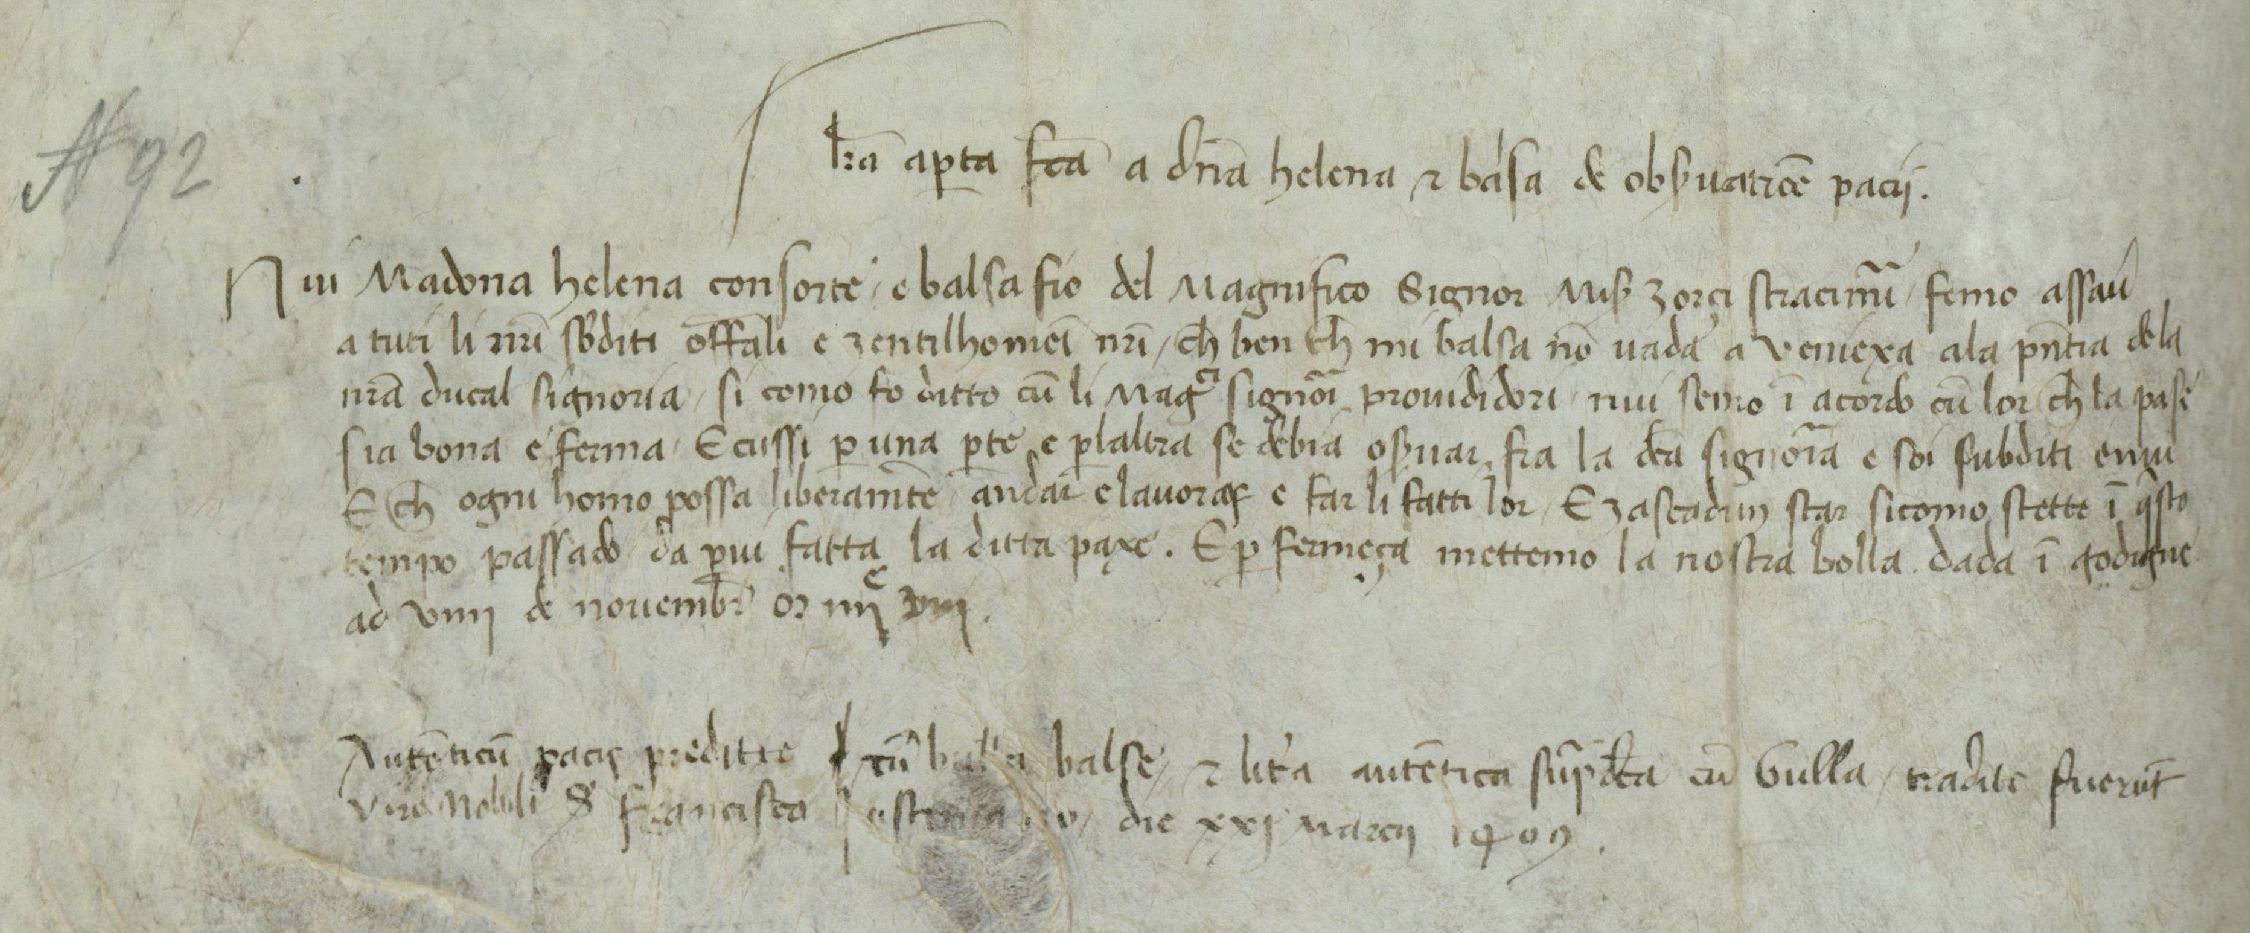 N 92
lr̃a aperta fc̃a a dn̄a helena ⁊ balsa de obs̱uatiõe pacij.
Nui Madona helena consorte / e balsa fio del Magnifico Signor Miss̱ zorzi stracimir̃ / femo assau̓
a tuti li nr̃i sb̓diti off̃ali e zentilhomeĩ nr̃i / ch̄ ben ch̄ mi balsa nō uada a veniexa ala pñtia de la
nr̃a ducal signoria / si como fo ditto cū li Magci signor̃i prouididori / nui semo ī acordo cū lor ch̄ la pase
sia bona e ferma / E cussi p̱ una p̱te e p̱ laltra se debia os̱uar, fra la dc̃a signor̃ia e soi subditi e nui
E ch̄ ogni homo possa liberamẽte andar e lauorar e far li fatti lor / E zaschadun star sicomo stette ī q̃sto
tempo passado da p̱ui fatta la ditta paxe. E p̱ fermeça mettemo la nostra bolla dada ī godigne
ad viiii de nouembr̃ m iiijc viij.
Autẽticũ pacis preditte cũ bulla balse / ⁊ litr̃a autẽtica sup̃dc̃a cũ bulla / tradite fuerũt
viro Nobili S̃ Francisco fuscareno / die xxj marcij 1409.